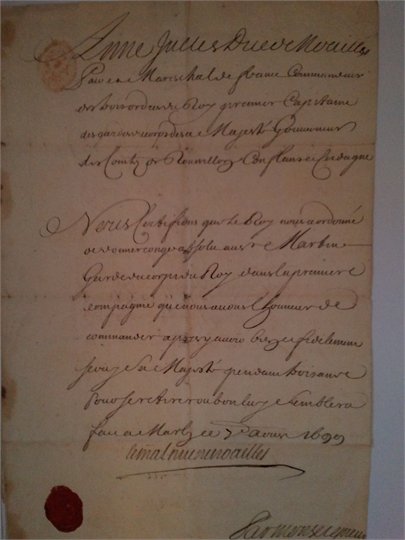 Anne Jules Duc de Noailles
Pair et Mareschal de france Commandeur
des ordres du Roy premier Capitaine
des gardes du corps de sa Majesté Gouverneur
des Comtez de Roussillon Conflans et Cerdagne
Nous Certifions que le Roy nous a ordonné
de donner congé absolu au sr Martin
Garde du corps du Roy dans la premiere
compagnie que nous avons l'honneur de
commander apres y avoir fidelement
servy Sa Majesté pendant trois ans
Pour se retirer ou bon luy semblera
fait a Marly ce aoust 1699
le mal duc de noailles
Par Monseigneur